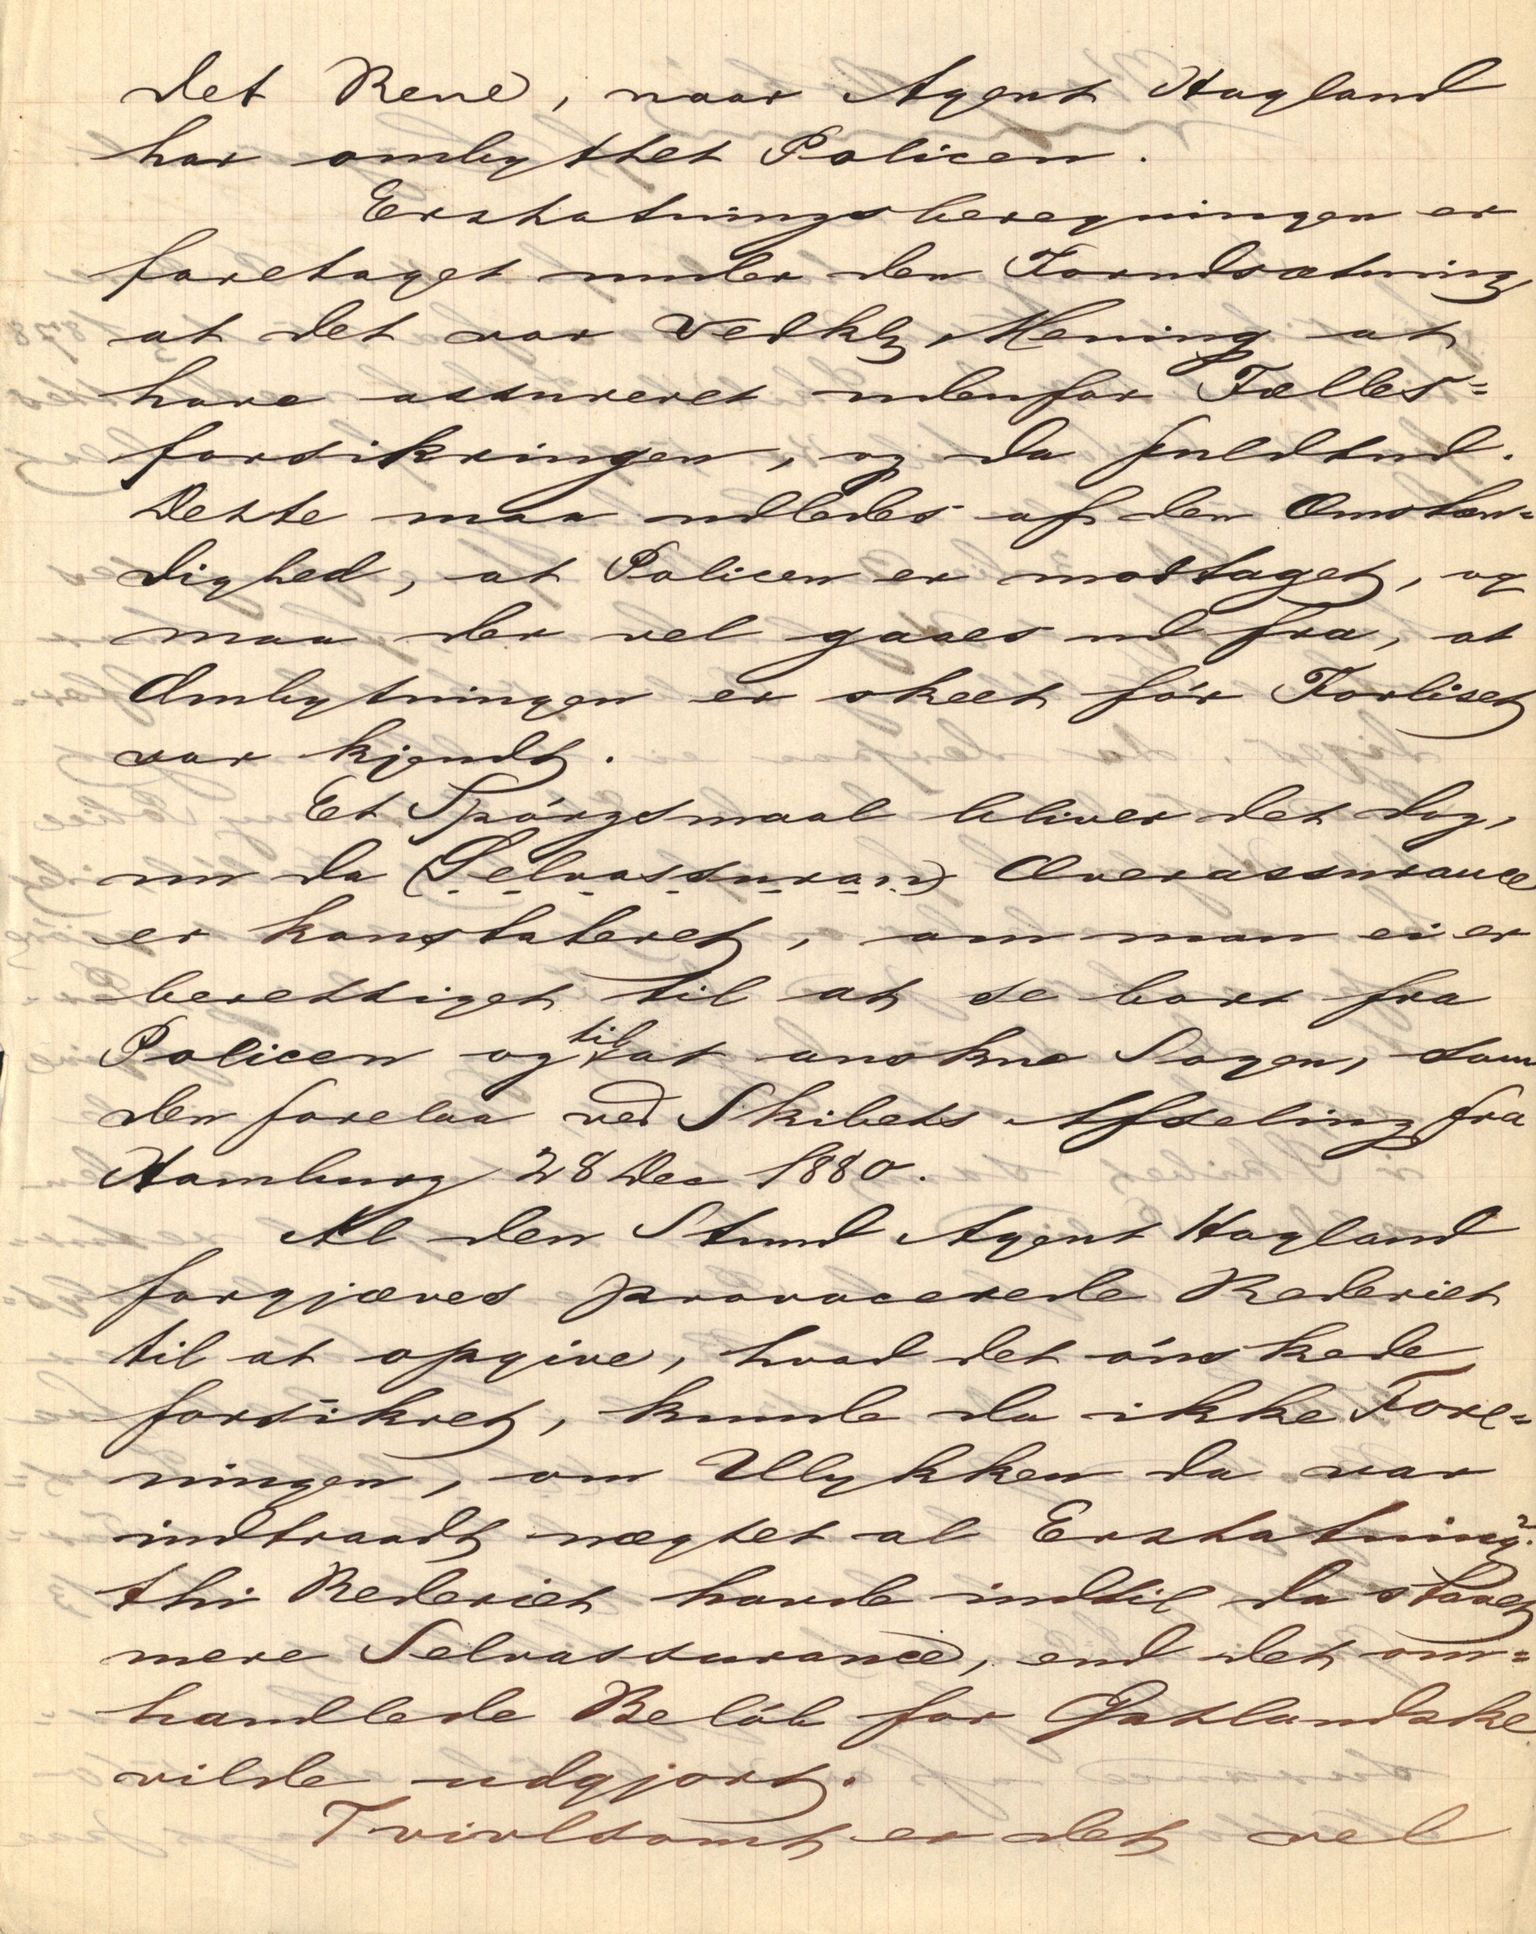 det Rene, naar Agent Hagland
har ombyttet Policen.
Erstatningsberegningen er
foretaget under den Forudsætning
at det var Vedk's Mening at
have assureret udenfor Fælles=
forsikringen, og da fuldtud.
Dette maa udledes af den Omstæn=
dighed, at Policen er modtaget, og
maa der vel gaaes ud fra, at
Ombytningen er skeet før Forliset
var kjendt.
Et Spørgsmaal bliver det dog,
nu da (Selvassuran) Overassurance
er konstateret, om man ei er
berettiget til at se bort fra
Policen og til at anskue Sagen, som
den forelaa ved Skibets Afseling fra
Hamburg 28 Dec 1880.
Al den Stund Agent Hagland
forgjæves provocerede Rederiet
til at opgive, hvad det ønskede
forsikret, kunde da ikke Fore=
ningen, om Ulykken da var
indtraadt nægtet al Erstatning?
thi Rederiet havde indtil da staaet
mere Selvassurance, end det om=
handlede Beløb for Østlandske
vilde udgjort.
Tvivlsomt er det vel